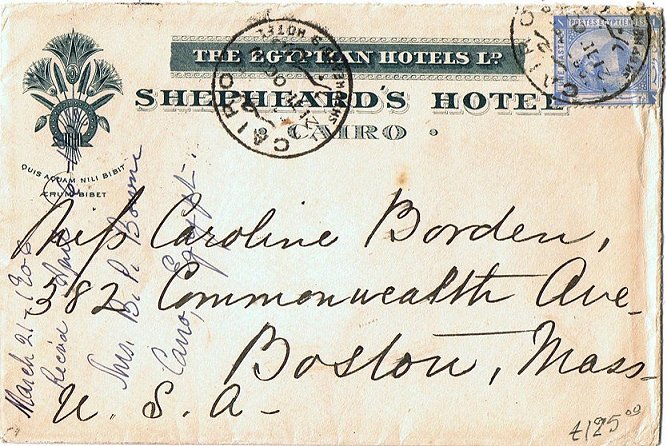 THE EGYPTIAN HOTELS LD.
SHEPHEARD'S HOTEL
CAIRO
QUIS AQUAM NILI BIBIT
ÆRUM BIBET
SHEPHEARD'S HOTEL
CAIRO
POSTES EGYPTIENNES
CAIRO
Miss Caroline Borden,
382 Commonwealth Ave-
Boston, Mass-
U. S. A-
March 21-1906
Rec'd April
Mrs. B. P. Bowne
Cairo, Egypt.
£125.00